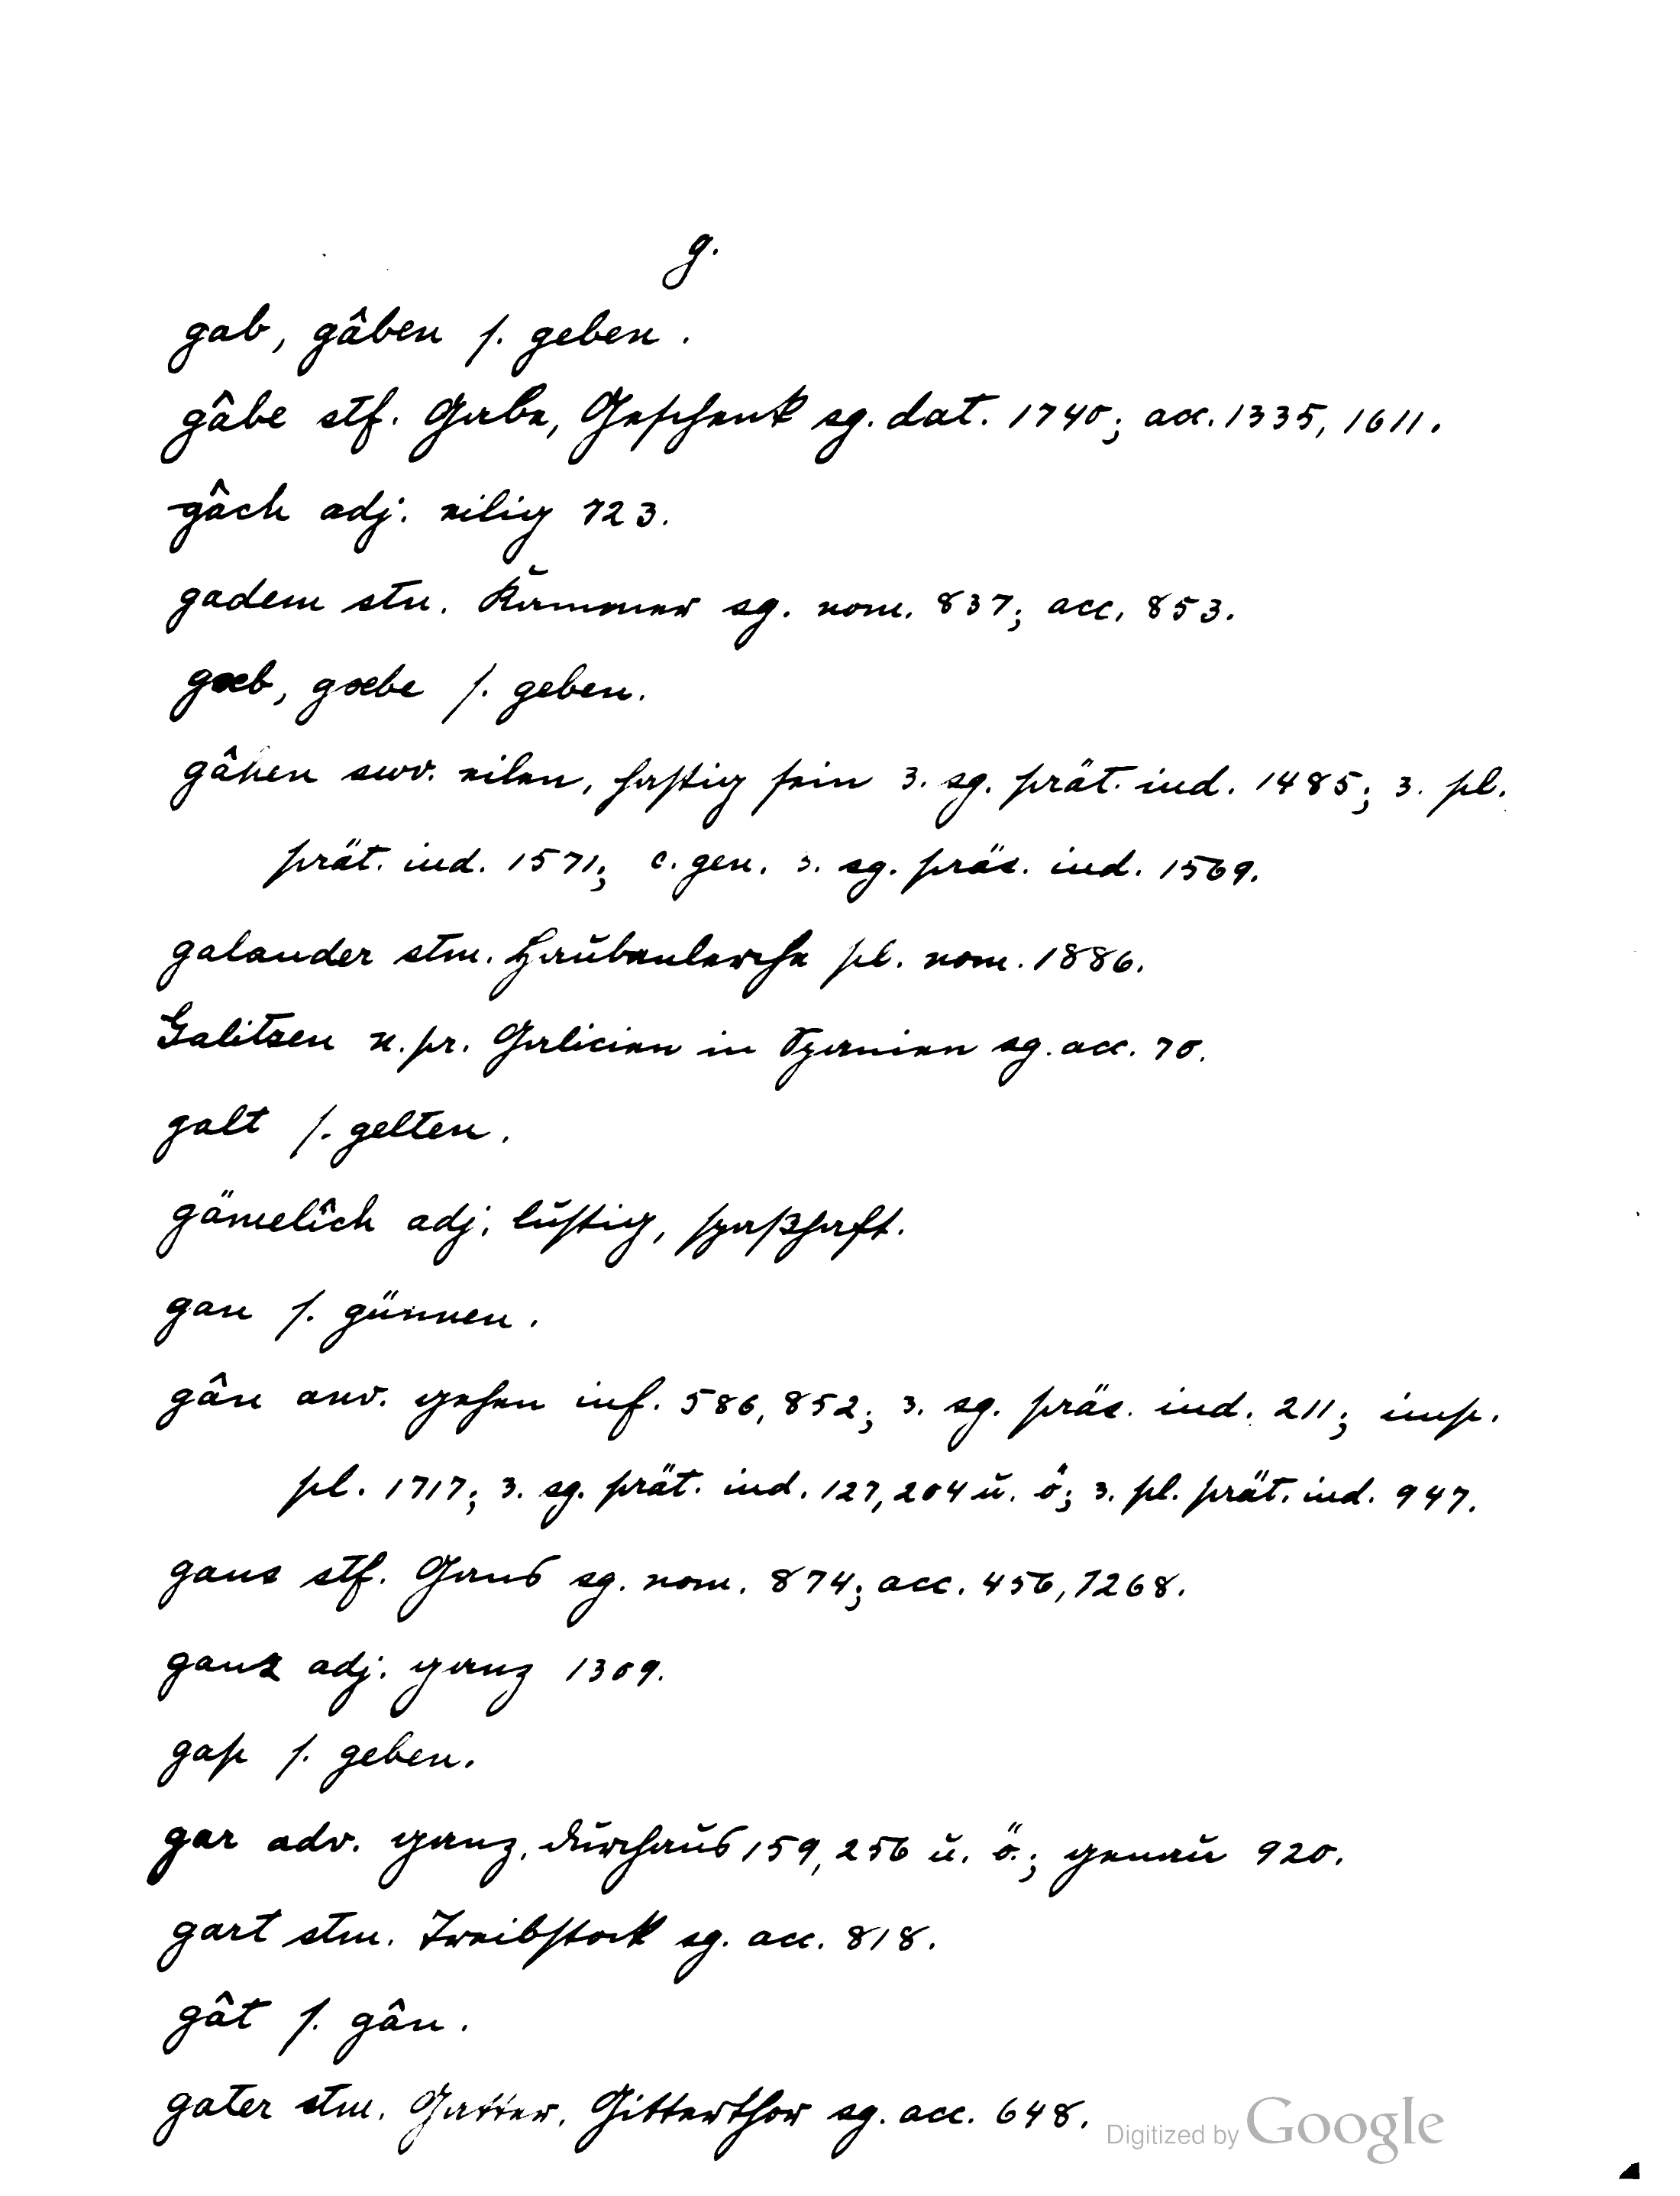 g.
gab, gâben s. geben.
gâbe stf. Gabe, Geschenk sg. dat. 1740; acc. 1335, 1611.
gâch adj. eilig 723.
gadem stn. Kammer sg. nom. 837; acc. 853.
gæb, gæbe s. geben.
gâhen swv. eilen, hastig sein 3. sg. prät. ind. 1485; 3. pl.
prät. ind. 1571; c. gen. 3. sg. präs. ind. 1569.
galander stm. Haubenlerche pl. nom. 1886.
Galitzen n. pr. Galicien in Spanien sg. acc. 70.
galt s. gelten.
gämelîch adj. lustig, spaßhaft.
gan s. günnen.
gân anv. gehen inf. 586, 852; 3. sg. präs. ind. 211; imp.
pl. 1717; 3. sg. prät. ind. 127, 204 u. ö; 3. pl. prät. ind. 947.
gans stf. Gans sg. nom. 874; acc. 456, 1268.
ganz adj. ganz 1309.
gap s. geben.
gar adv. ganz, durchaus 159, 256 u. ö.; genau 920.
gart stm. Treibstock sg. acc. 818.
gât s. gân.
gater stm. Gatter, Gitterthor sg. acc. 648.
Digitized by Google